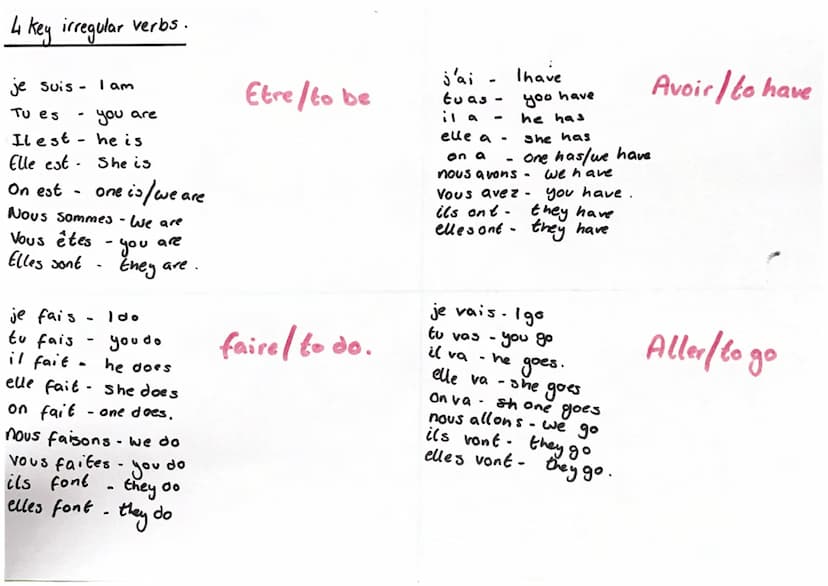 4 key irregular verbs.
Etre/to be
je suis - I am
Tu es - you are
Il est - he is
Elle est - She is
On est - one is/we are
Nous sommes - we are
Vous êtes - you are
Elles sont - they are.
Avoir/to have
j'ai - I have
tu as - you have
il a - he has
elle a - she has
on a - one has/we have
nous avons - we have
Vous avez - you have.
ils ont - they have
elles ont - they have
faire/to do.
je fais - I do
tu fais - you do
il fait - he does
elle fait - she does
on fait - one does.
nous faisons - we do
vous faites - you do
ils font - they do
elles font - they do
Aller/to go
je vais - I go
tu vas - you go
il va - he goes.
elle va - she goes
on va - one goes
nous allons - we go
ils vont - they go
elles vont - they go.